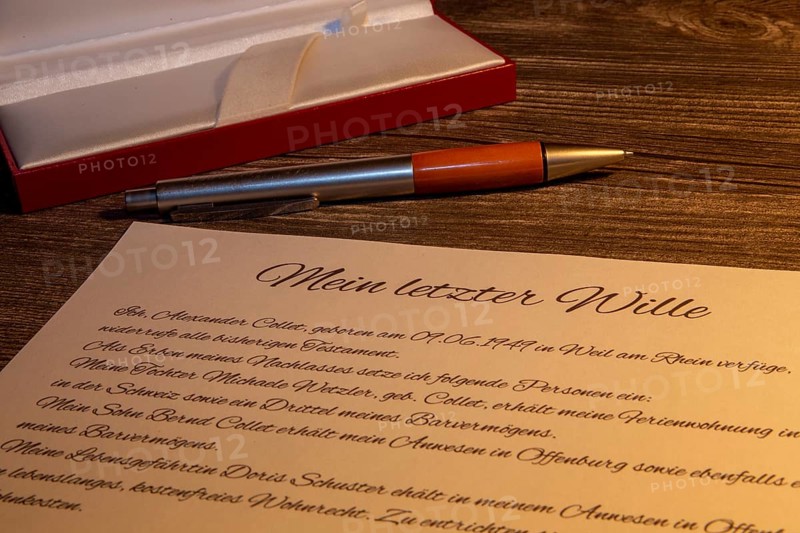 Mein letzter Wille
Ich, Alexander Collet, geboren am 09.06.1949 in Weil am Rhein verfüge.
widerrufe alle bisherigen Testament.
Als Erben meines Nachlasses setze ich folgende Personen ein:
Meine Töchter Michaele Wetzler, geb. Collet, erhält meine Ferienwohnung in
in der Schweiz sowie ein Drittel meines Barvermögens.
Mein Sohn Bernd Collet erhält mein Anwesen in Offenburg sowie ebenfalls e
meines Barvermögens.
Meine Lebensgefährtin Doris Schuster ehält in meinem Anwesen in Offenb
n lebenslanges, kostenfreies Wohnrecht. Zu entrichten
hnkosten.
PHOTO12